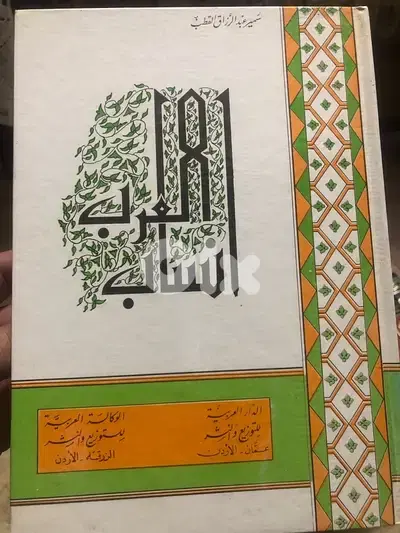 سمير عبد الرزاق القطب
أنساب
العرب
الدار العربية
للتوزيع والنشر
عمّان - الأردن
الوكالة العربية
للتوزيع والنشر
الزرقاء - الأردن